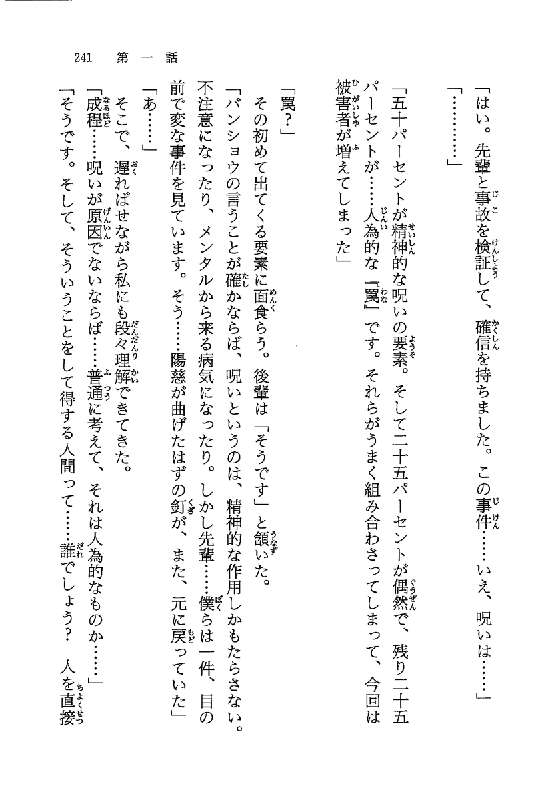 241　第一話
「はい。先輩と事故を検証して、確信を持ちました。この事件……いえ、呪いは……」
「…………」
「五十パーセントが精神的な呪いの要素。そして二十五パーセントが偶然で、残り二十五
パーセントが……人為的な『罠』です。それらがうまく組み合わさってしまって、今回は
被害者が増えてしまった」
「罠？」
その初めて出てくる要素に面食らう。後輩は「そうです」と頷いた。
「パンショウの言うことが確かならば、呪いというのは、精神的な作用しかもたらさない。
不注意になったり、メンタルから来る病気になったり。しかし先輩……僕らは一件、目の
前で変な事件を見ています。そう……陽慈が曲げたはずの釘が、また、元に戻っていた」
「あ……」
そこで、遅ればせながら私にも段々理解できてきた。
「成程……呪いが原因でないならば……普通に考えて、それは人為的なものか……」
「そうです。そして、そういうことをして得する人間って……誰でしょう？　人を直接